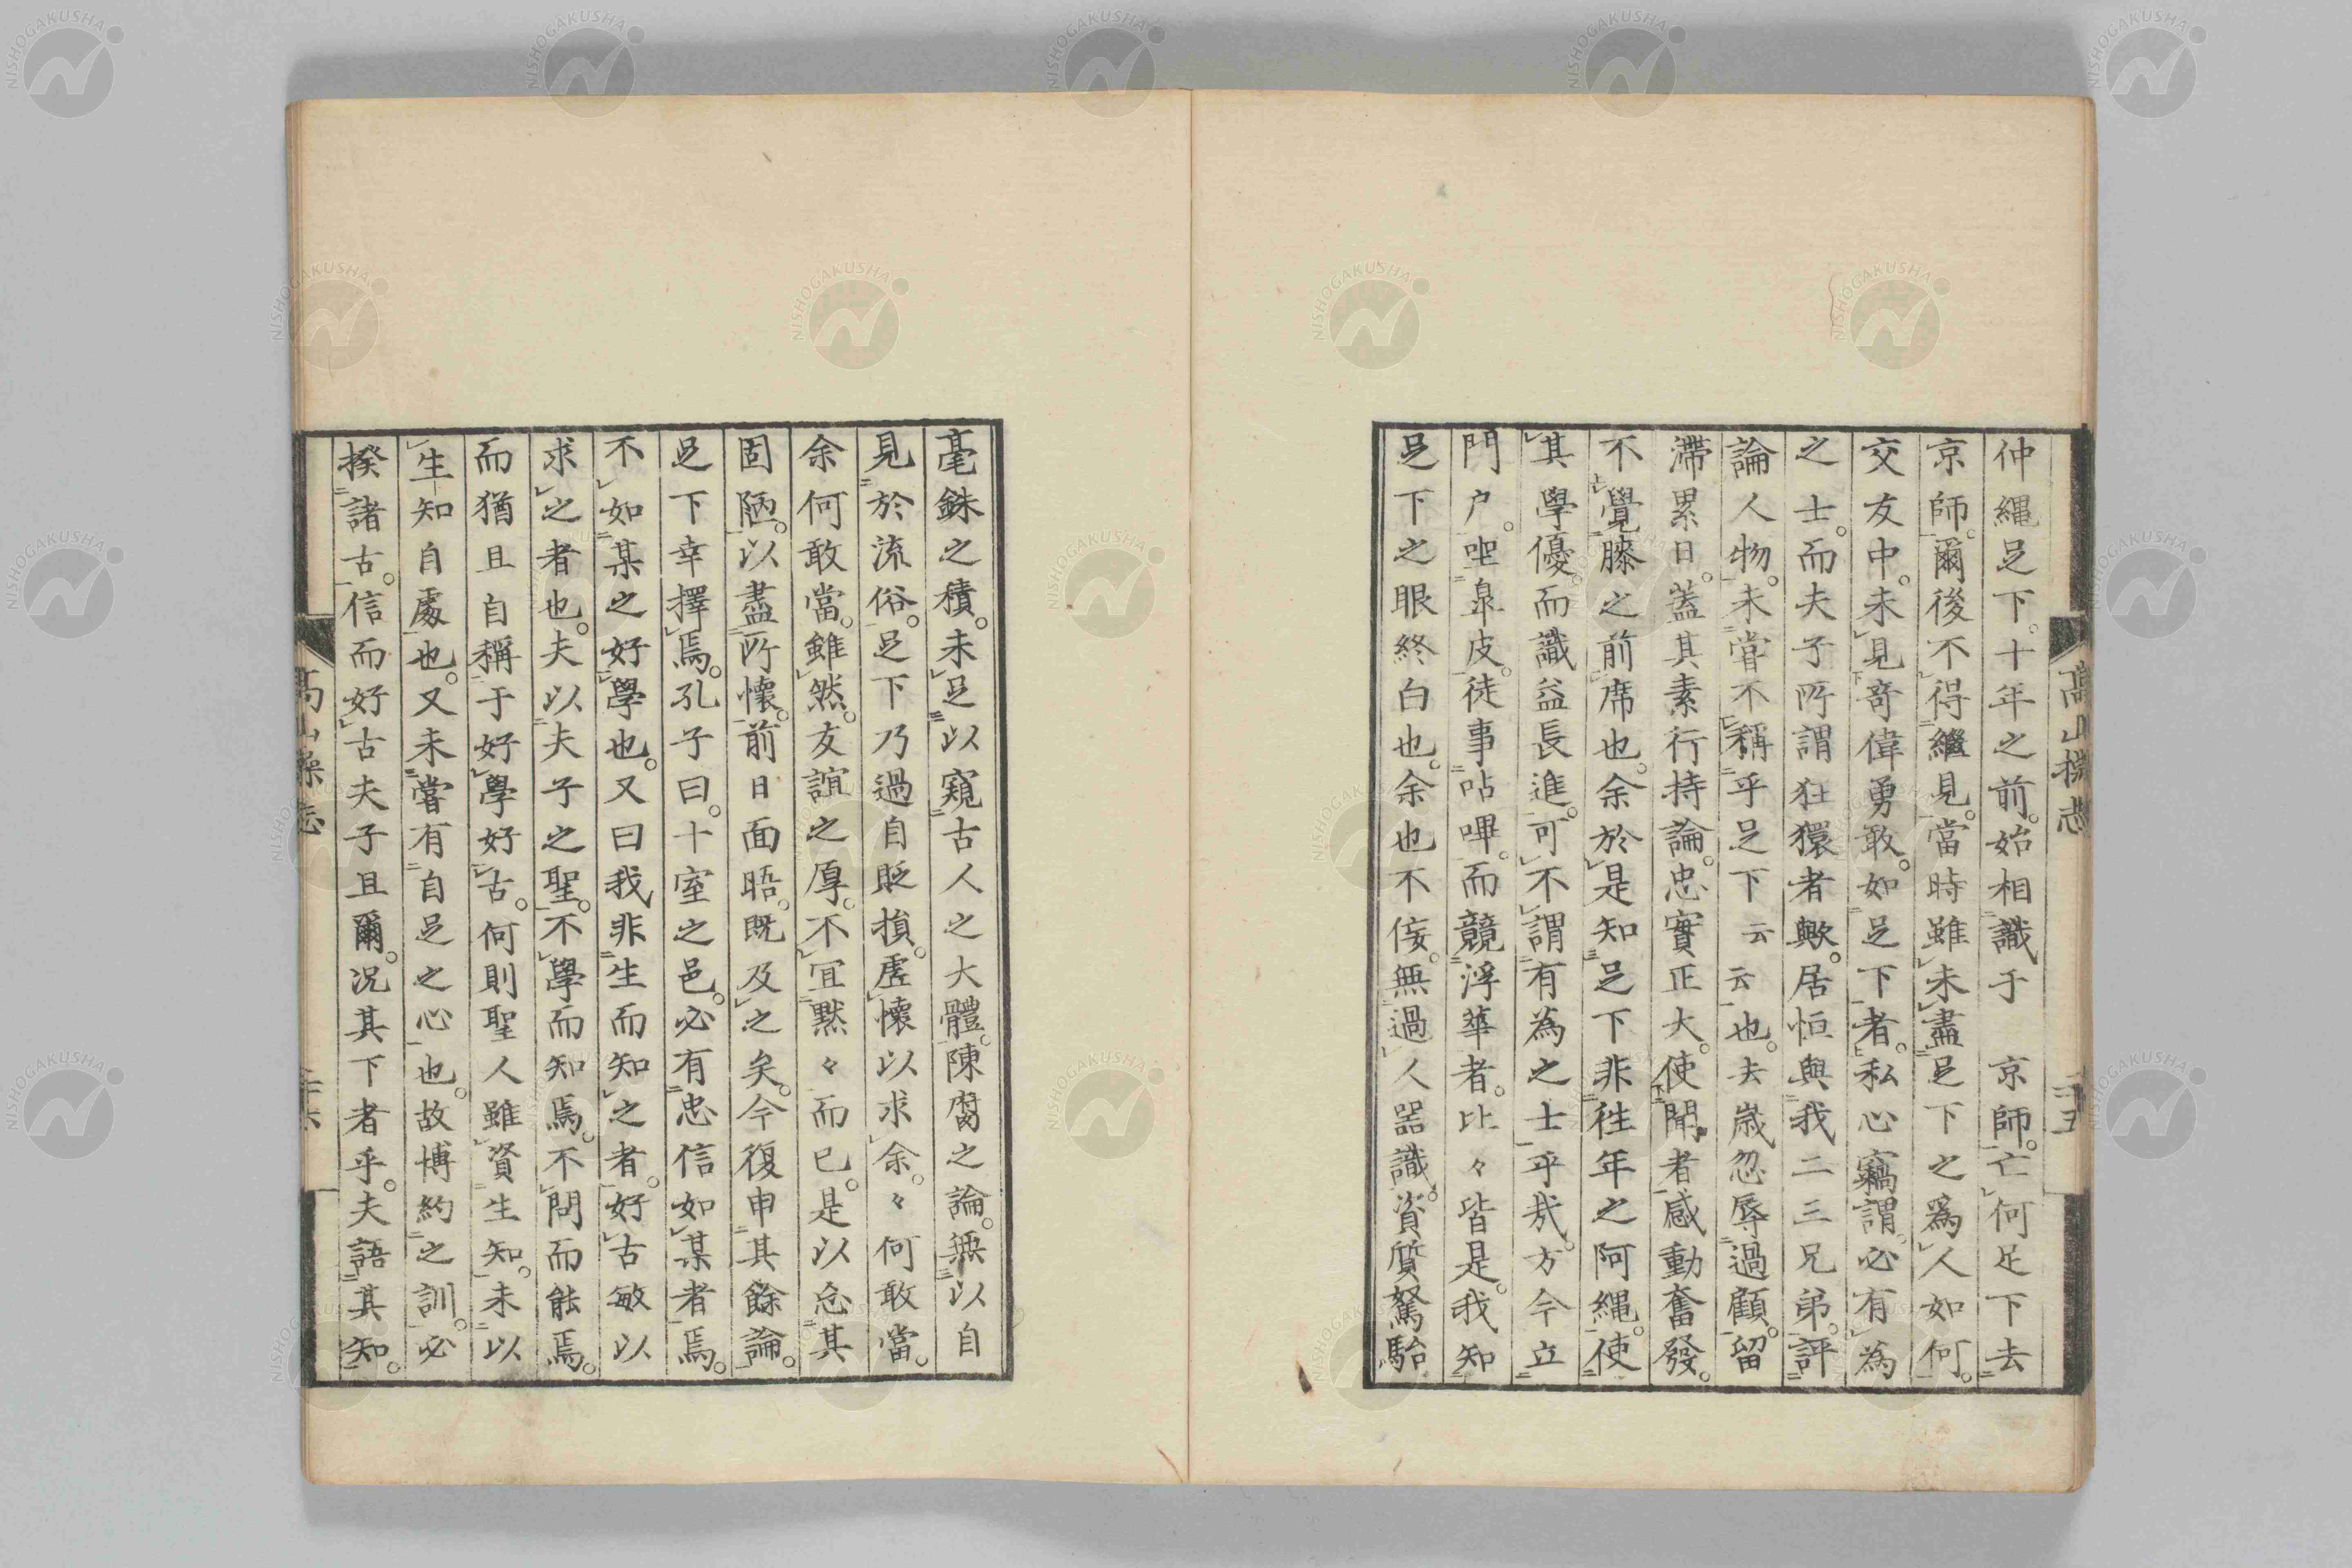 仲繩足下。十年之前。始相識于　京師。亡何足下去
京師。爾後不得繼見。當時雖未盡足下之爲人如何。
交友中。未見奇偉勇敢。如足下者。私心竊謂。必有為
之士。而夫子所謂狂獧者歟。居恒與我二三兄弟。評
論人物。未嘗不稱乎足下云云也。去歲忽辱過顧。留
滯累日。蓋其素行持論。忠實正大。使聞者感動奮發。
不覺膝之前席也。余於是知足下非徃年之阿繩。使
其學優而識益長進。可不謂有為之士乎哉。方今立
門户。坐皐皮。徒事呫嗶。而競浮華者。比々皆是。我知
足下之眼終白也。余也不佞。無過人器識。資質駑駘
毫銖之積。未足以窺古人之大體。陳腐之論。無以自
見於流俗。足下乃過自貶損。虛懷以求余。々何敢當。
余何敢當。雖然。友誼之厚。不宜默々而已。是以忘其
固陋。以盡所懷。前日面晤。既及之矣。今復申其餘論。
足下幸擇焉。孔子曰。十室之邑。必有忠信如某者焉。
不如某之好學也。又曰我非生而知之者。好古敏以
求之者也。夫以夫子之聖。不學而知焉。不問而能焉。
而猶且自稱于好學好古。何則聖人雖資生知。未以
生知自處也。又未嘗有自足之心也。故博約之訓。必
揆諸古。信而好古夫子且爾。況其下者乎。夫語其知。
高山操志
二十五
高山操志